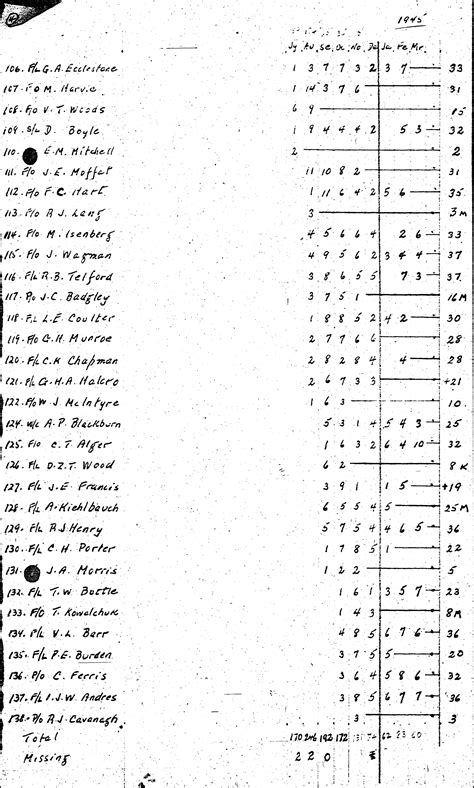 1945
Jy Au Se Oc No De Ja Fe Mr
106. F/L G. A. Ecclestone 1 3 7 7 3 2 3 7 — 33
107. F/O M. Harvie 1 14 3 7 6 — 31
108. F/O V. T. Woods 6 9 — 15
109. S/L D. Boyle 1 9 4 4 4 2 5 3 — 32
110. E. M. Mitchell 2 — 2
111. F/O J. E. Moffat 11 10 8 2 — 31
112. F/O F. C. Hart 1 11 6 4 2 5 6 — 35
113. P/O R. J. Lang 3 — 3 M
114. F/O M. Isenberg 4 5 6 6 4 2 6 — 33
115. F/O J. Wagman 4 9 5 6 2 3 4 4 — 37
116. F/L R. B. Telford 3 8 6 5 5 7 3 — 37
117. P/O J. C. Badgley 3 7 5 1 — 16 M
118. F/L L. E. Coulter 1 8 8 5 2 4 2 — 30
119. F/O G. H. Munroe 2 7 7 6 6 — 28
120. F/L C. K Chapman 2 8 2 8 4 4 — 28
121. F/L G. H. A. Halcro 2 6 7 3 3 — +21
122. F/O W J. McIntyre 1 6 3 — 10
124. W/C A. P. Blackburn 5 3 1 4 5 4 3 — 25
125. F/O C. T. Alger 1 6 3 2 6 4 10 — 32
126. F/L D. Z. T. Wood 6 2 — 8 K
127. F/L J. E. Francis 3 9 1 1 5 — +19
128. F/L A. Kiehlbauch 6 5 5 4 5 — 25 M
129. F/L R J Henry 5 7 5 4 4 6 5 — 36
130. F/L C. H. Porter 1 7 8 5 1 — 22
131. J. A. Morris 1 2 2 — 5
132. F/L T. W. Bottle 1 6 1 3 5 7 — 23
133. F/O T. Kowalchuk 1 4 3 — 8 M
134. F/L V. L. Barr 4 8 5 6 7 6 — 36
135. F/L P. E. Burden 3 7 5 5 — 20
136. P/O C. Ferris 3 6 4 5 8 6 — 32
137. F/L I. J. W. Andres 3 8 5 6 7 7 — 36
138. P/O R. J. Cavanagh 3 — 3
Total 170 246 192 172 62 83 60
Missing 2 2 0